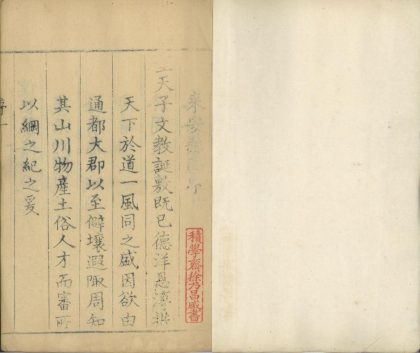 來安縣
天子文教誕敷既已德洋恩溥躋
天下於道一風同之盛因欲由
通都大郡以至僻壤遐陬周知
其山川物產土俗人才而審所
以綱之紀之爰
序一
積學齋徐乃昌藏書